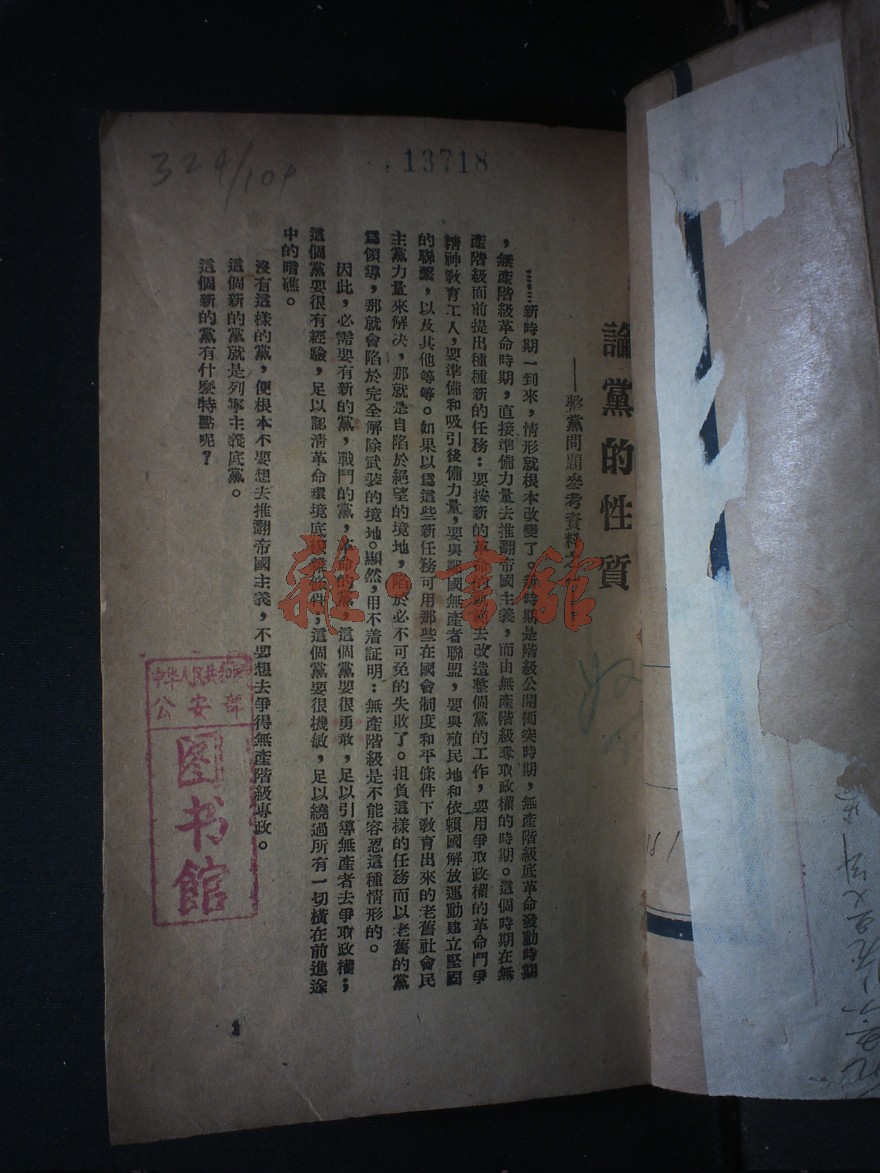 324/101
13718
論黨的性質
——整黨問題參考資料之
……新時期一到來，情形就根本改變了。新時期是階級公開衝突時期，無產階級底革命發動時期
，無產階級革命時期，直接準備力量去推翻帝國主義，而由無產階級奪取政權的時期。這個時期在無
產階級面前提出種種新的任務：要按新的革命的
去改造整個黨的工作，要用爭取政權的革命鬥爭
精神敎育工人，要準備和吸引後備力量，要與鄰國無產者聯盟，要與殖民地和依賴國解放運動建立堅固
的聯繫，以及其他等等。如果以爲這些新任務可用那些在國會制度和平條件下敎育出來的老舊社會民
主黨力量來解決，那就是自陷於絕望的境地，陷於必不可免的失敗了。担負這樣的任務而以老舊的黨
爲領導，那就會陷於完全解除武裝的境地。顯然，用不着証明：無產階級是不能容忍這種情形的。
因此，必需要有新的黨，戰鬥的黨，革命的黨，這個黨要很勇敢，足以引導無產者去爭取政權；
這個黨要很有經驗，足以認清革命環境底複雜條件；這個黨要很機敏，足以繞過所有一切橫在前進途
中的暗礁。
沒有這樣的黨，便根本不要想去推翻帝國主義，不要想去爭得無產階級專政。
這個新的黨就是列寧主義底黨。
這個新的黨有什麼特點呢？
1
中华人民共和国
公安部
图书馆
雜·書館